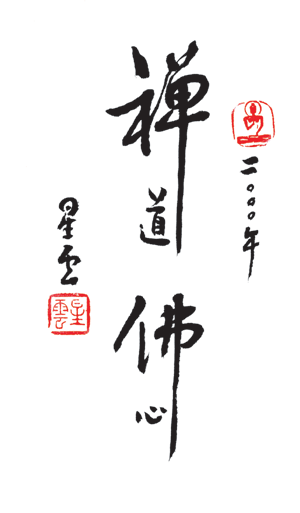 二〇〇〇年
禪道佛心
星雲
星雲